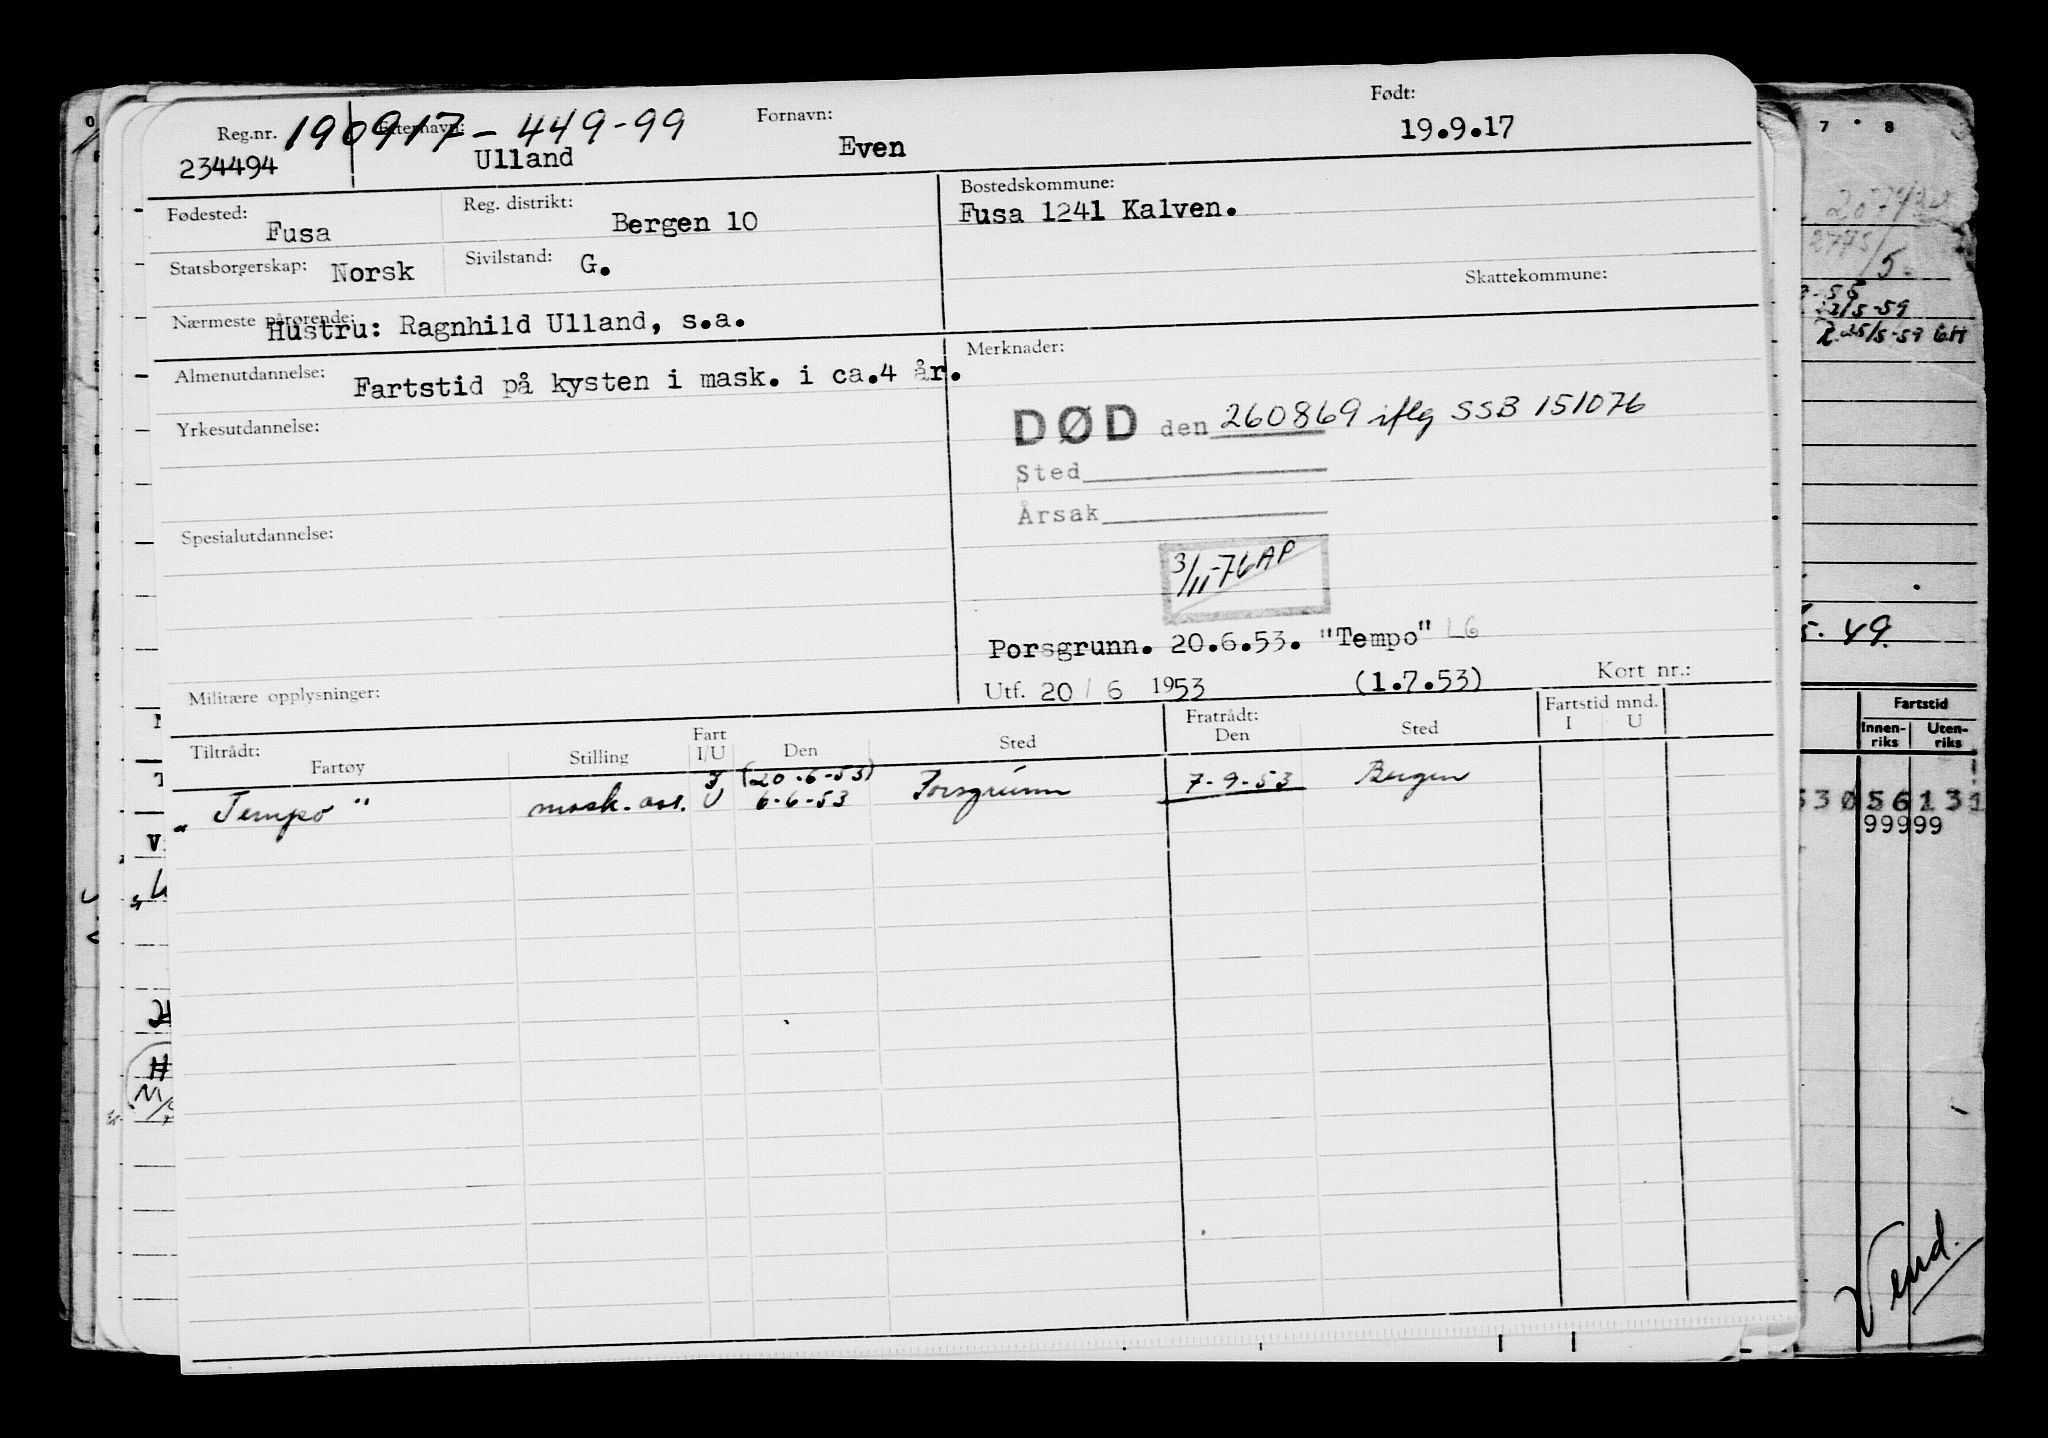 Reg.nr. 190917-449-99 Etternavn: Fornavn: Født:
234494 Ulland Even 19.9.17
Fødested: Fusa Reg. distrikt: Bergen 10 Bostedskommune:
Fusa 1241 Kalven.
Statsborgerskap: Norsk Sivilstand: G. Skattekommune:
Nærmeste pårørende: Hustru: Ragnhild Ulland, s.a.
Almenutdannelse: Fartstid på kysten i mask. i ca.4 år. Merknader:
Yrkesutdannelse:
DØD den 260869 iflg SSB 151076
Sted
Årsak
Spesialutdannelse:
3/11-76 AP
Porsgrunn. 20.6.53. "Tempo" LG
Militære opplysninger: Utf. 20/6 1953 (1.7.53) Kort nr.:
Tiltrådt: Fart Fratrådt: Fartstid mnd.
Fartøy Stilling I/U Den Sted Den Sted I U
(20-6-53)
"Tempo" mask. ass. U 6-6-53 Porsgrunn 7-9-53 Bergen
7 8
22/5-59
R. 25/5-59 GH
49.
Fartstid
Innen-riks Uten-riks
3056131
99999
Vend.